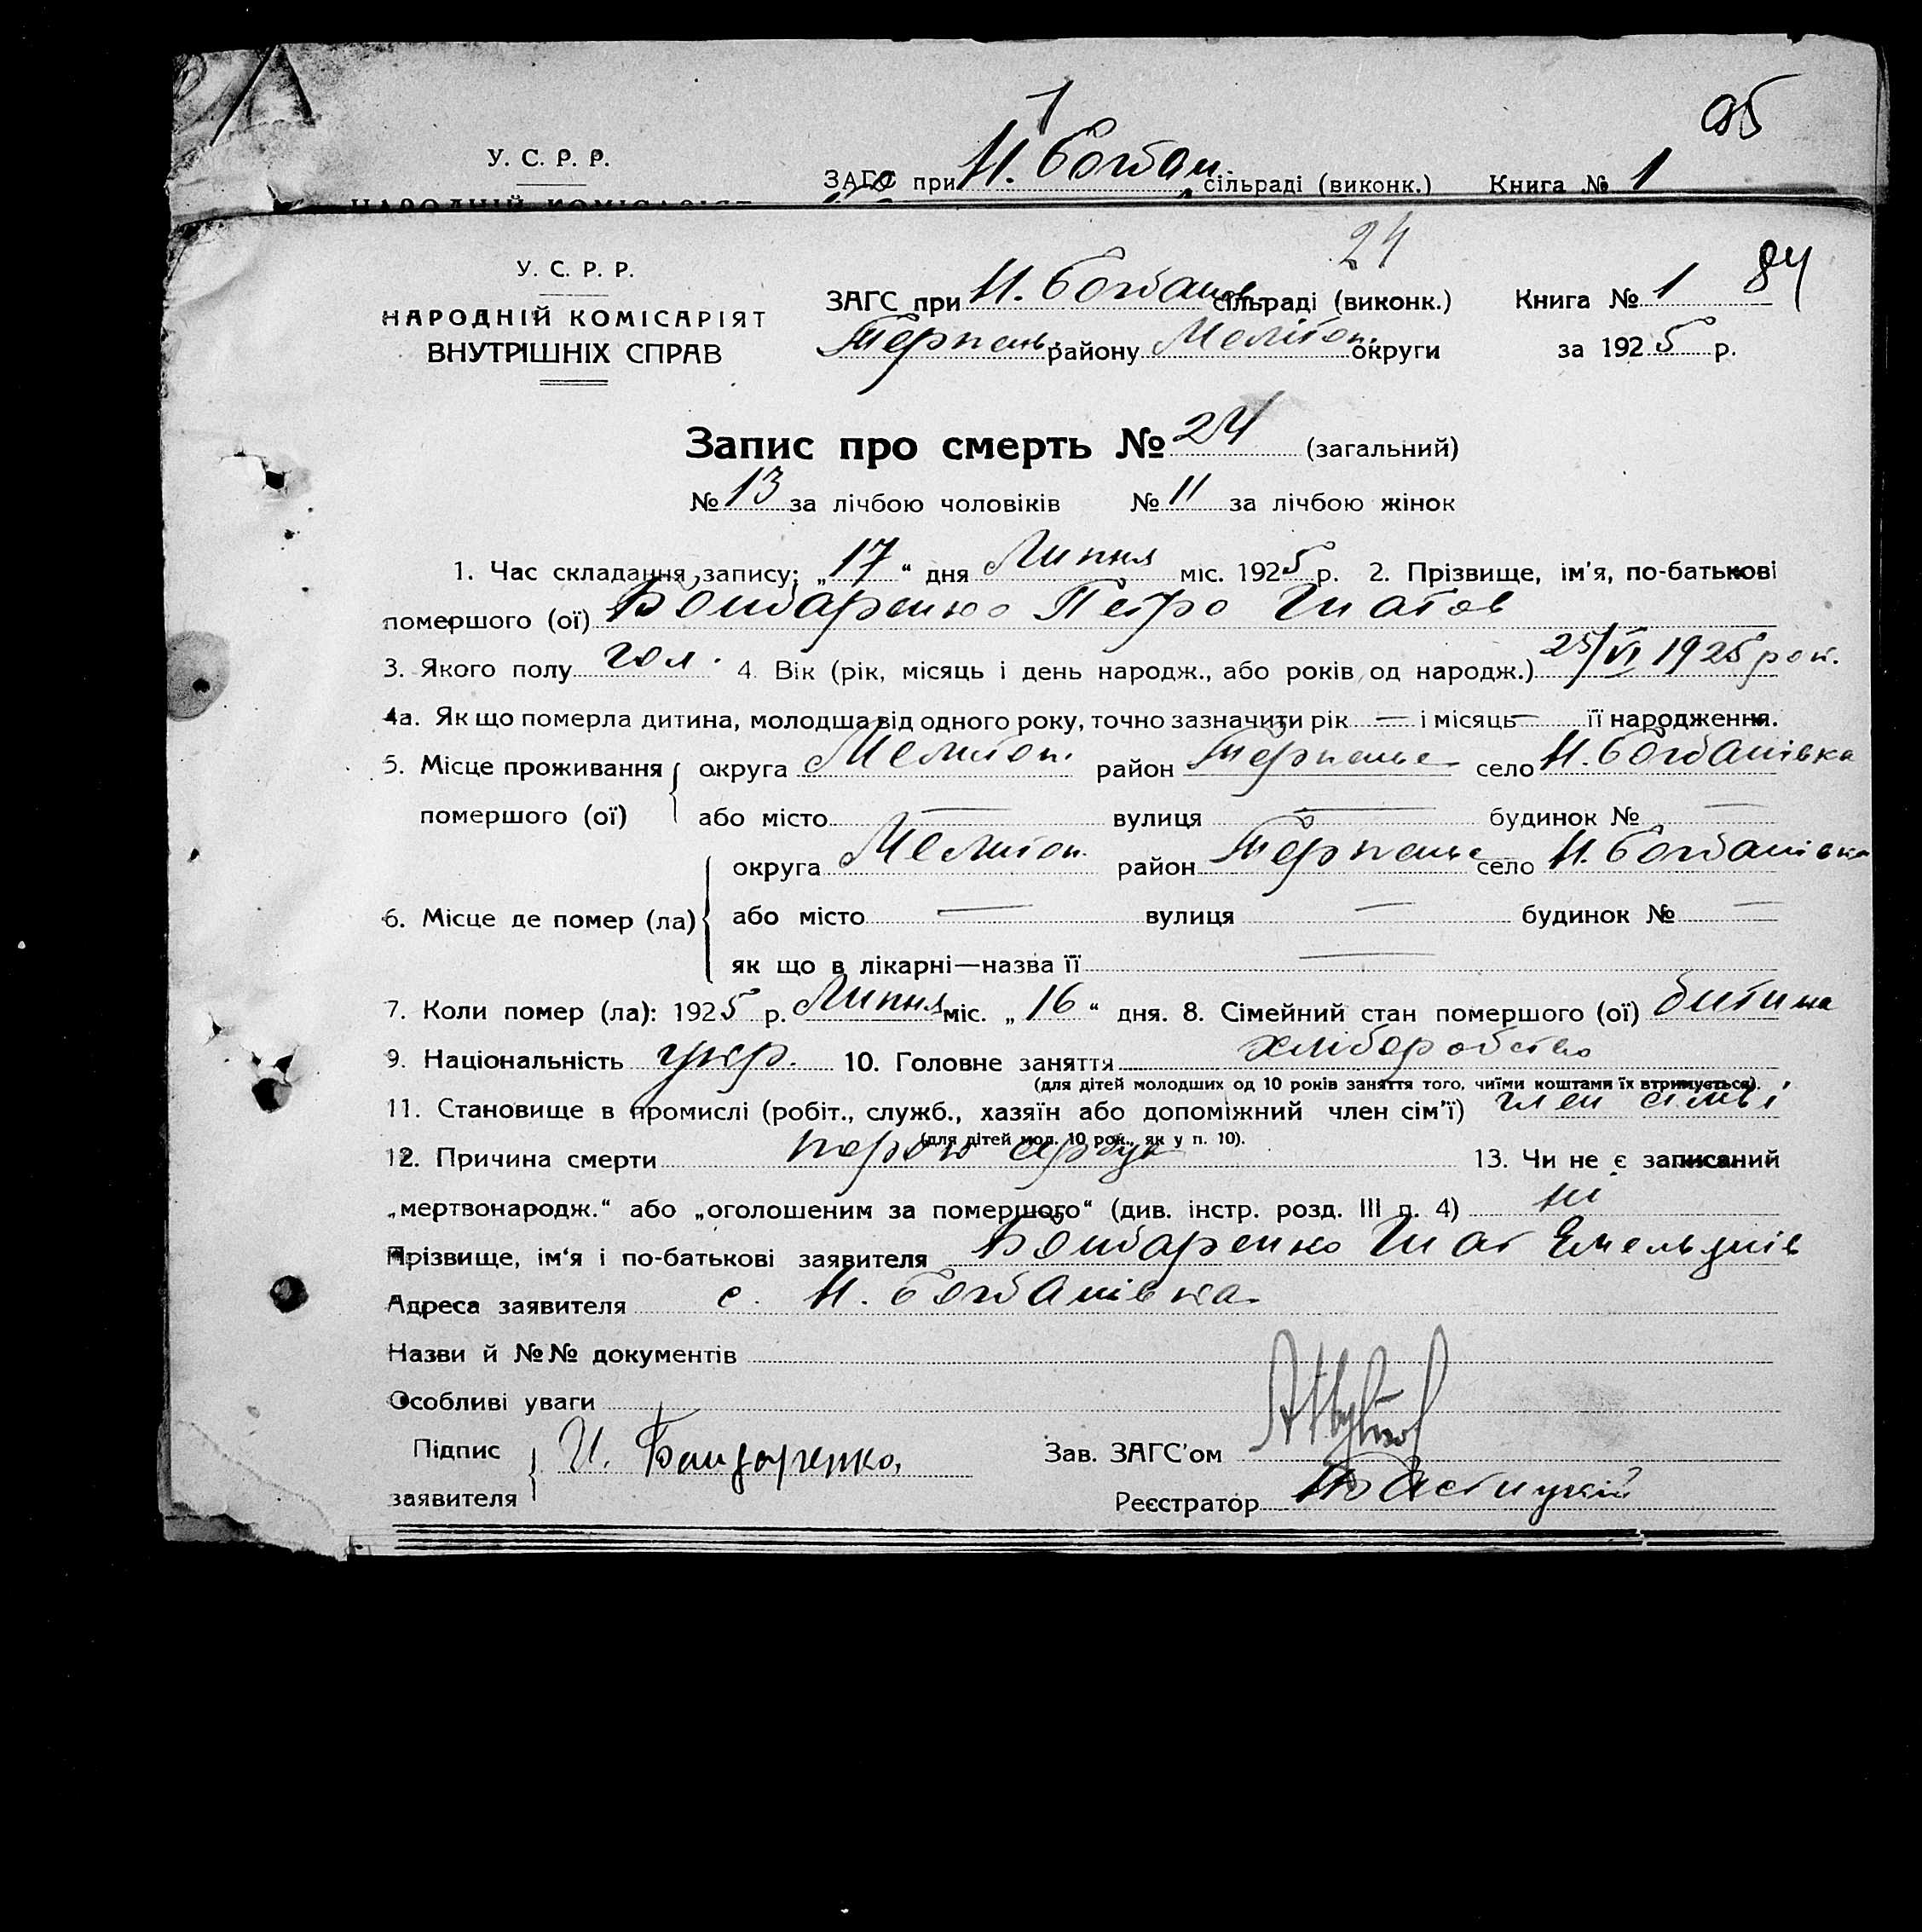 1
95
У. С. Р. Р. ЗАГС при Н. Богдан. сільраді (виконк.) Книга № 1
НАРОДНІЙ КОМІСАРІЯТ
24
У. С. Р. Р. ЗАГС при Н. Богданов. сільраді (виконк.) Книга № 1 84
НАРОДНІЙ КОМІСАРІЯТ Терпень. району Меліт​оп. округи за 1925 р.
ВНУТРІШНІХ СПРАВ
Запис про смерть № 24 (загальний)
№ 13 за лічбою чоловіків № 11 за лічбою жінок
1. Час складання запису: „17“ дня Липня міс. 1925 р. 2. Прізвище, ім'я, по-батькові
помершого (ої) Бондаренко Петро Гнатов
3. Якого полу чол. 4. Вік (рік, місяць і день народж., або років од народж.) 25/VI 1925 рок.
4а. Як що померла дитина, молодша від одного року, точно зазначити рік — і місяць — її народження.
5. Місце проживання округа Мелитоп. район Терпенье село Н. Богданівка
помершого (ої) або місто — вулиця — будинок № —
округа Мелитоп. район Терпенье село Н. Богданівка
6. Місце де помер (ла) або місто — вулиця — будинок № —
як що в лікарні—назва її —
7. Коли помер (ла): 1925 р. Липня міс. „16“ дня. 8. Сімейний стан помершого (ої) дитина
9. Національність укр. 10. Головне заняття хліборобство
(для дітей молодших од 10 років заняття того, чиїми коштами їх втримується).
11. Становище в промислі (робіт., служб., хазяїн або допоміжний член сім'ї) член сімьі
(для дітей мол. 10 рок., як у п. 10).
12. Причина смерти порок серця 13. Чи не є записаний
„мертвонародж.“ або „оголошеним за помершого“ (див. інстр. розд. III п. 4) ні
Прізвище, ім'я і по-батькові заявителя Бондаренко Гнат Емельянів
Адреса заявителя с. Н. Богданівка
Назви й №№ документів
Особливі уваги
Підпис И. Бандаренко, Зав. ЗАГС'ом
заявителя Реєстратор